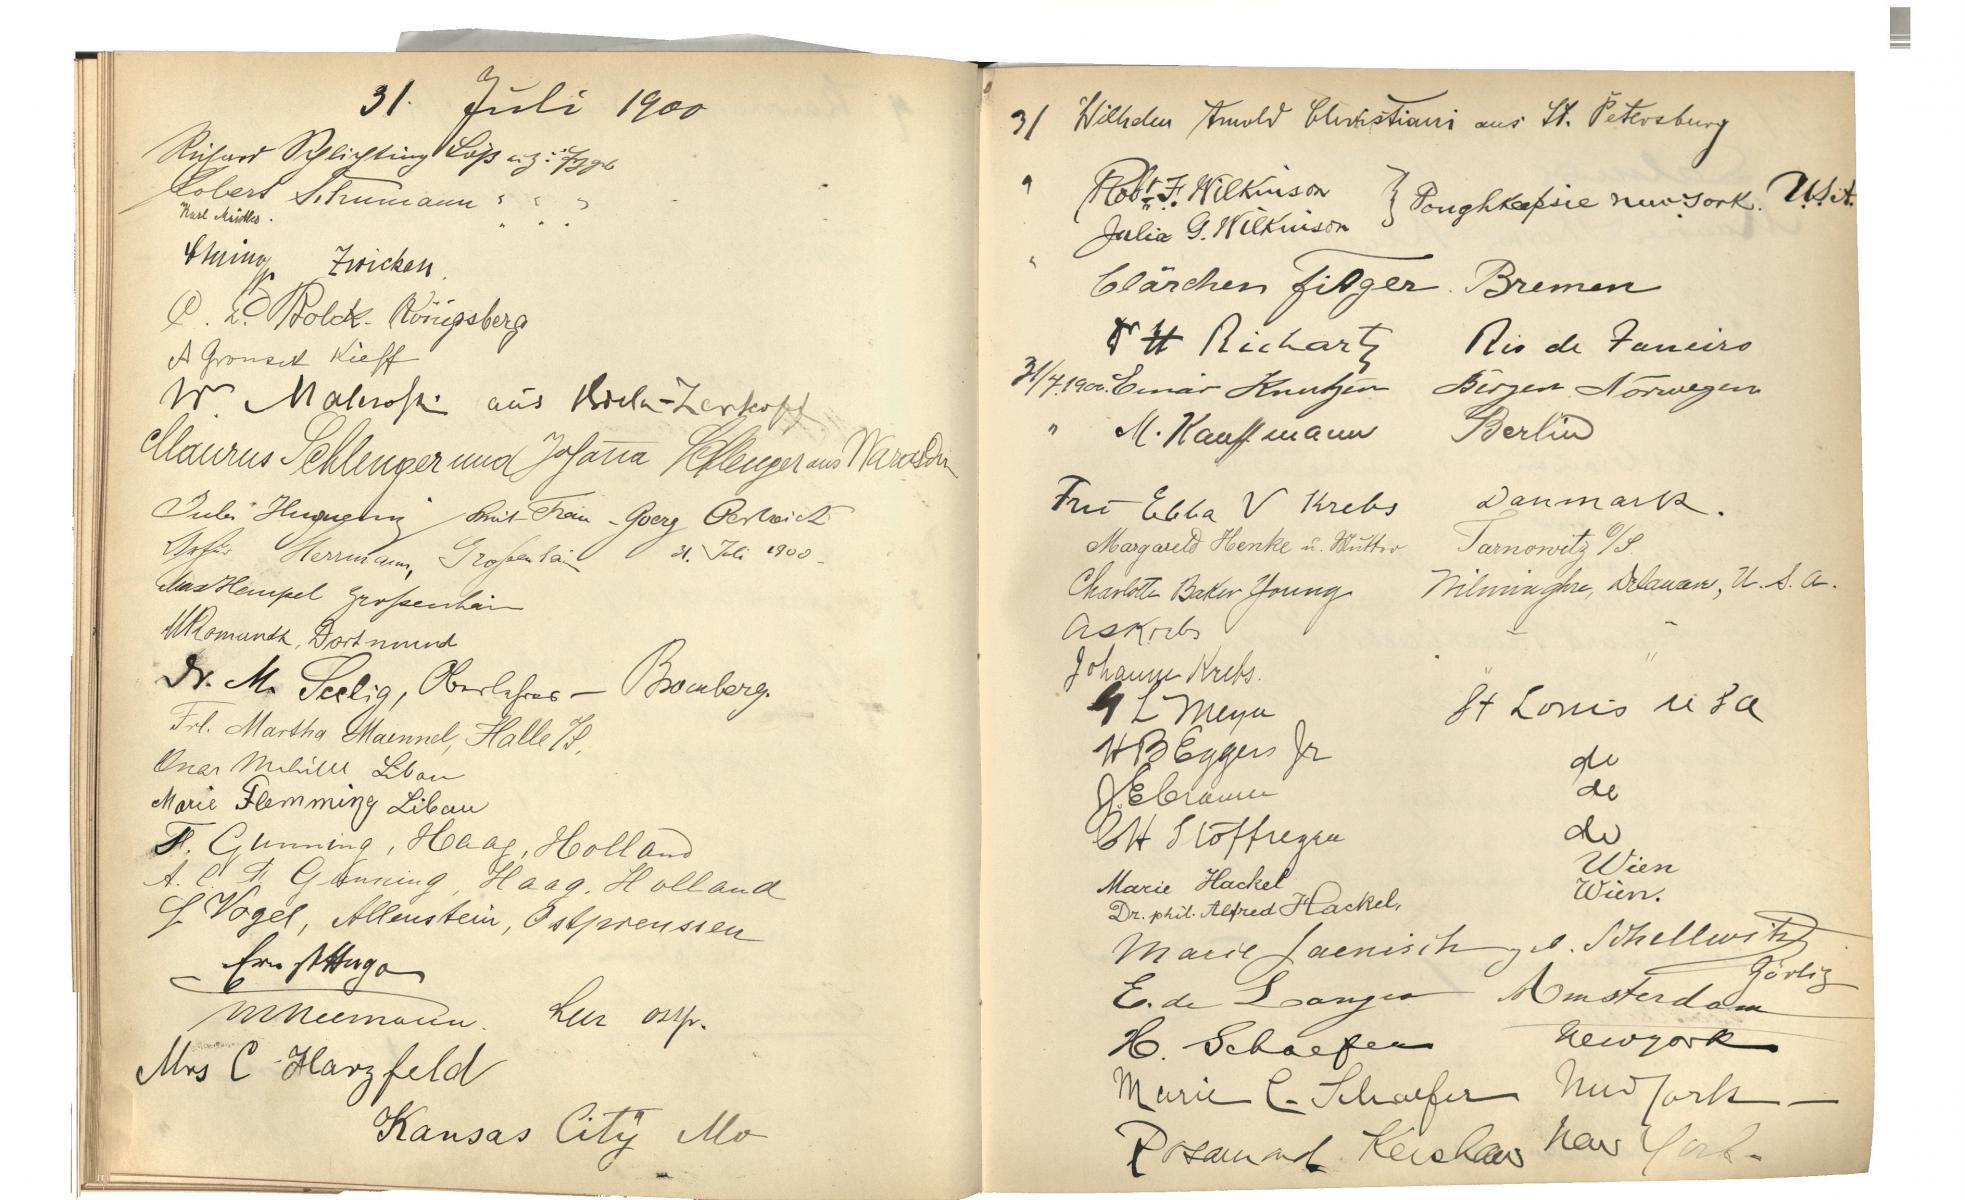 31. Juli 1900
Richard Schlichting
Robert Schumann " " "
Karl " " "
Zwickau
Königsberg
A Kieff
W. aus
Maurus Schlenger und Johanna Schlenger aus Warasdin
mit Frau - Georg
Arthur Herrmann, Großenhain 31. Juli 1900
Max Hempel Großenhain
Romundt, Dortmund
Dr. M. Seelig, Oberlehrer - Bromberg.
Frl. Martha Maennel, Halle /S.
Libau
Marie Flemming Libau
F. Gunning, Haag, Holland
A. C. F. Gunning, Haag. Holland
Vogel, Allenstein, Ostpreussen
Ernst Hugo
M Neemann. Leer ostfr.
Mrs C Harzfeld
Kansas City Mo
31 Wilhelm Arnold Christiani aus St. Petersburg
" Robt F. Wilkinson } Poughkepsie new York. U.S.A.
Julia G. Wilkinson
" Clärchen Fitger. Bremen
Dr H Richartz Rio de Janeiro
31/7.1900. Einar Knutzen Bergen Norwegen
" M. Kauffmann Berlin
Fru Ebba V Krebs Danmark.
Margareth Henke u. Mutter Tarnowitz O/S.
Charlotte Baker Young Wilmington, Delaware, U. S. A.
A S Krebs " "
Johanne Krebs. " "
G L Meyer St Louis U S A
H B Eggers Jr do
J. E Cramer do
C H Stoffregen do
Marie Hackel Wien
Dr. phil. Alfred Hackel, Wien.
Marie Jaenisch geb. Schellwitz
Görlitz
E. de Lange Amsterdam
H. Schaefer Newyork
Marie C. Schaefer New York -
Rosamond Kershaw New York.